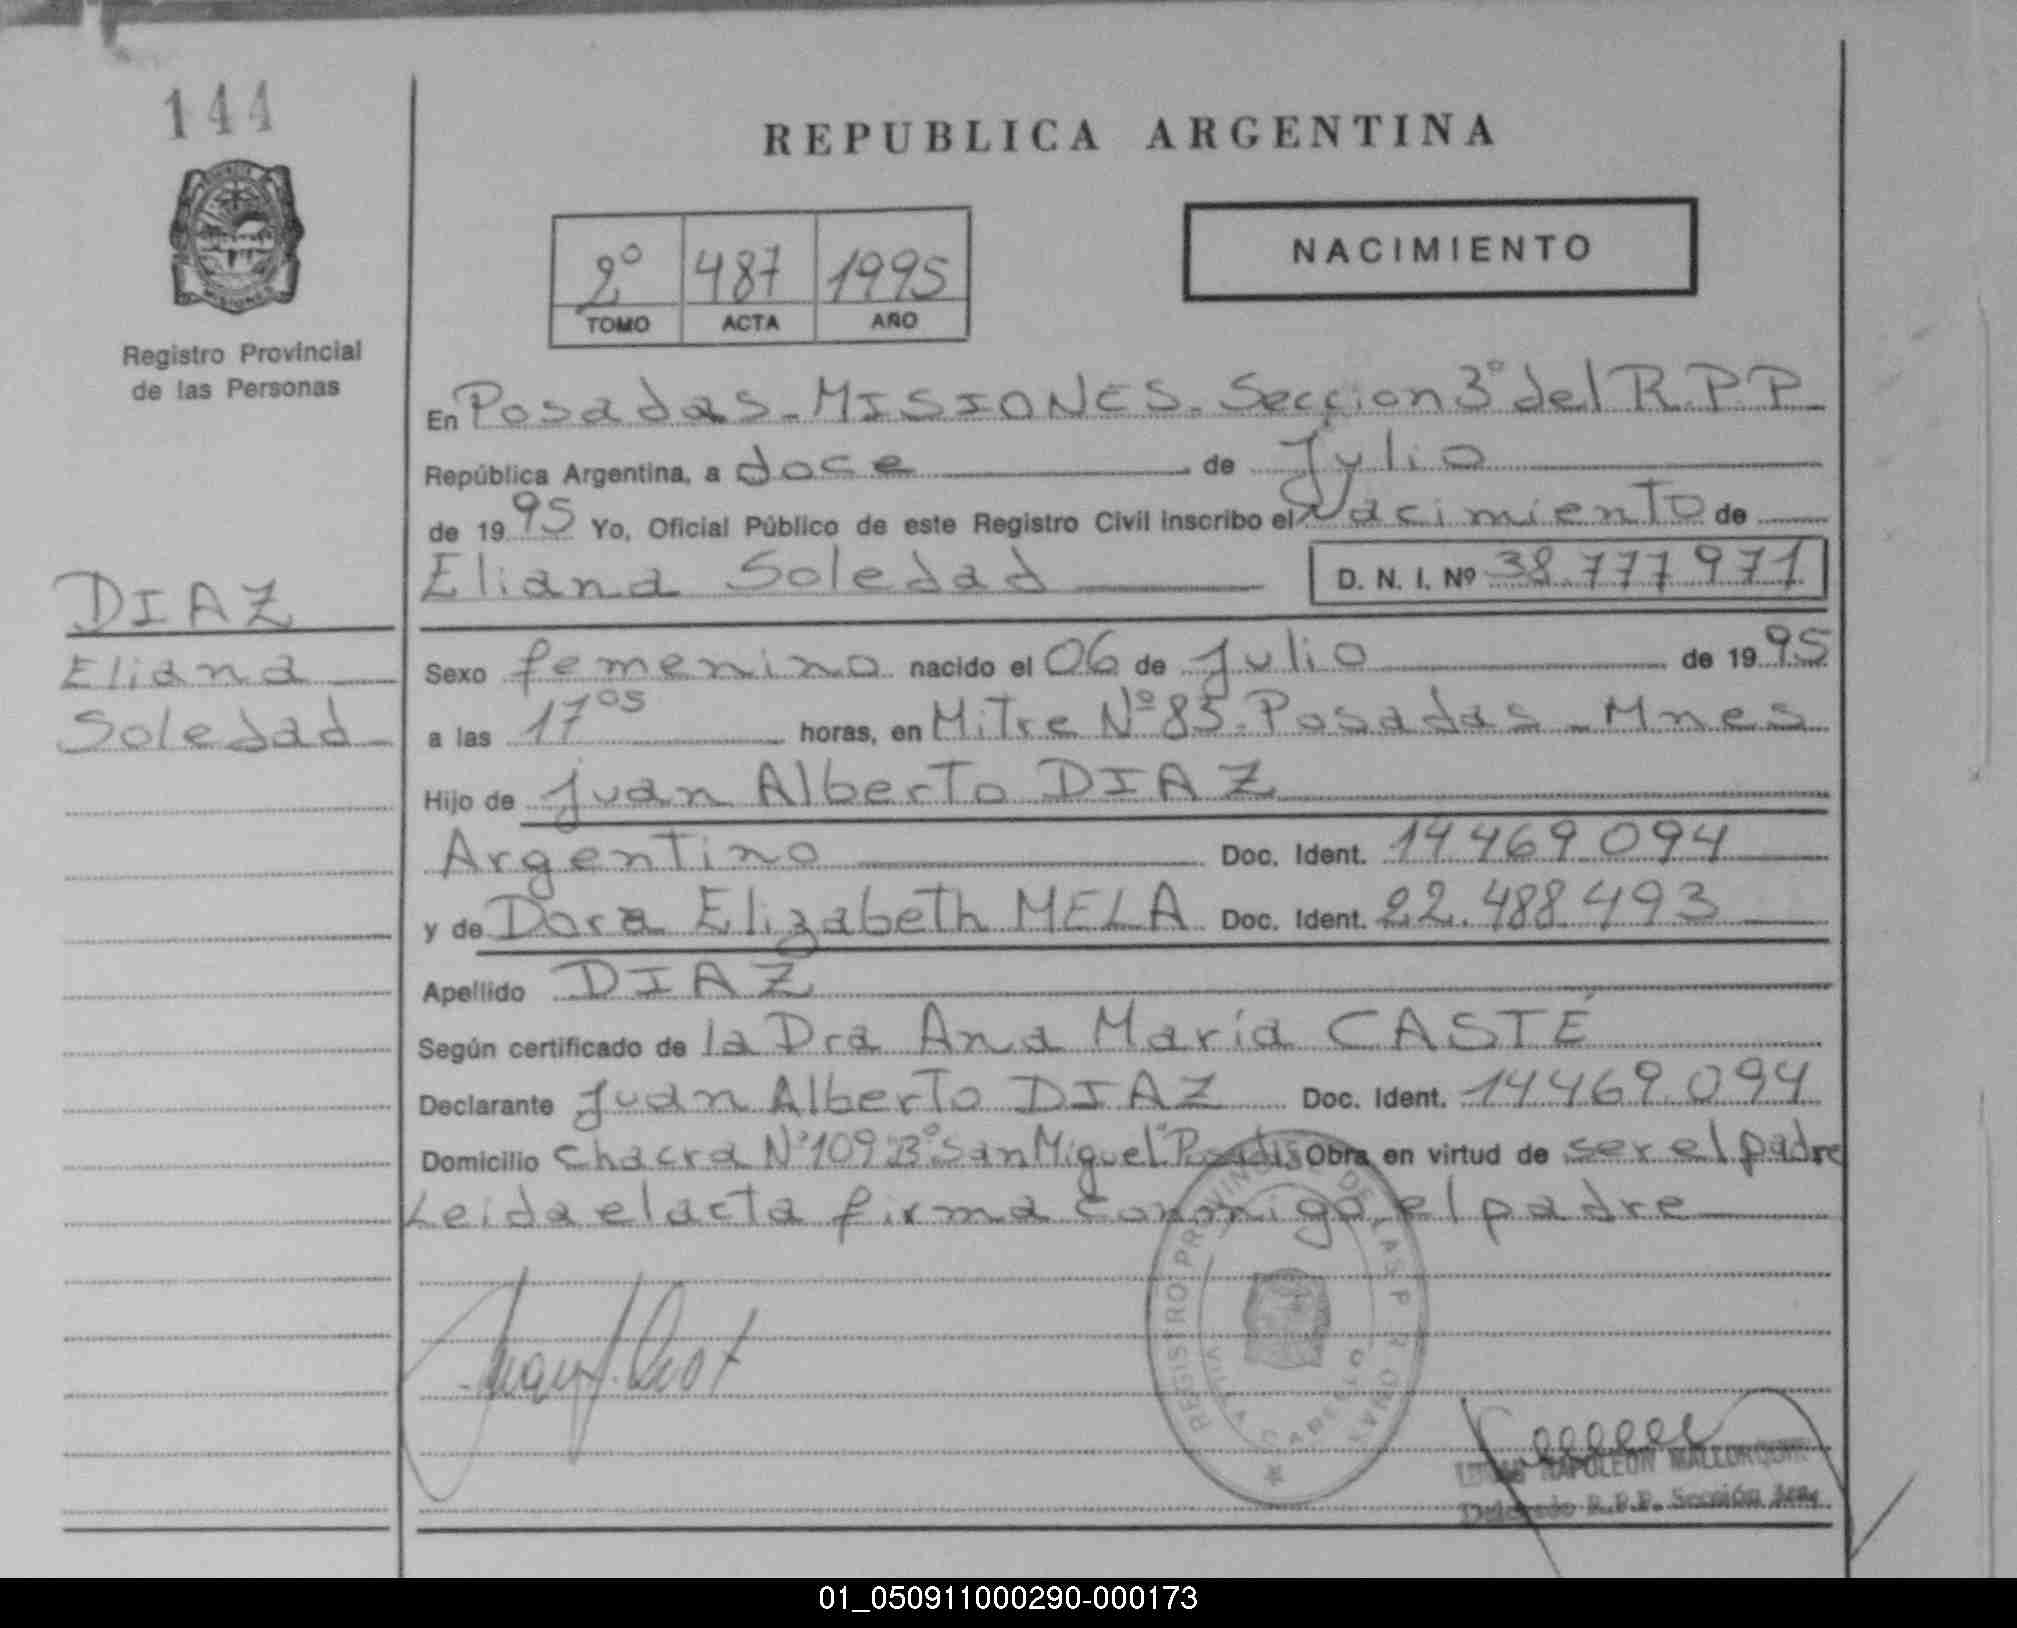 144
REPUBLICA ARGENTINA
NACIMIENTO
2º 487 1995
TOMO ACTA AÑO
MISIONES
Registro Provincial
de las Personas
En Posadas - MISIONES - Seccion 3º del R.P.P
República Argentina, a doce de Julio
de 1995 Yo, Oficial Público de este Registro Civil inscribo el Nacimiento de
Eliana Soledad D. N. I. Nº 38.777 971
DIAZ
Eliana
Soledad
Sexo femenino nacido el 06 de Julio de 1995
a las 17º⁵ horas, en Mitre Nº 85 - Posadas - Mnes
Hijo de Juan Alberto DIAZ
Argentino Doc. Ident. 14 469 094
y de Dora Elizabeth MELA Doc. Ident. 22.488 493
Apellido DIAZ
Según certificado de la Dra Ana María CASTÉ
Declarante Juan Alberto DIAZ Doc. Ident. 14469.094
Domicilio Chacra Nº 109 Bº "San Miguel" Posadas Obra en virtud de ser el padre
Leida el acta firma conmigo el padre
REGISTRO PROVINCIAL DE LAS PERSONAS
VILLA CABELLO
NAPOLEON
R.P.P. Sección 3ra
01_050911000290-000173